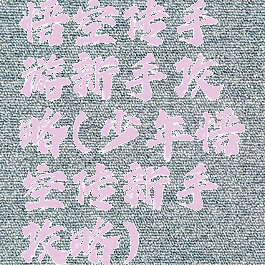 悟空传手
游新手攻
略(少年悟
空传新手
攻略)